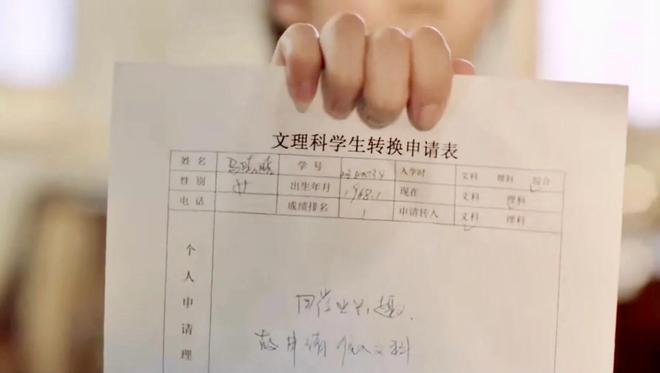 文理科学生转换申请表
姓名 学号 入学时 文科 理科 综合
性别 出生年月 1968.1 现在 文科 理科
电话 成绩排名 1 申请转入 文科 理科
个人申请理
因学业兴趣,
故申请 文科